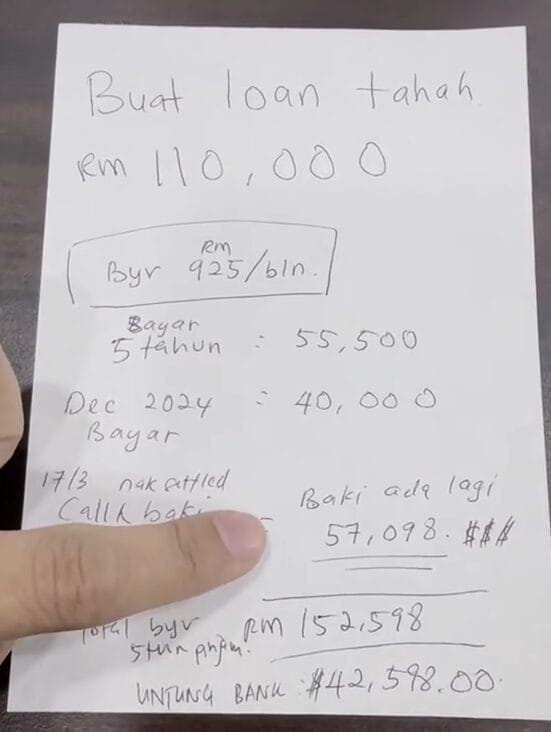 Buat loan tahah
RM 110,000
RM
Byr 925/bln.
Bayar
5 tahun : 55,500
Dec 2024 : 40,000
Bayar
17/3 nak settled
Callk baki
Baki ada lagi
57,098. $$$
Total byr RM 152,598
5thn
UNTUNG BANK: $42,598.00.